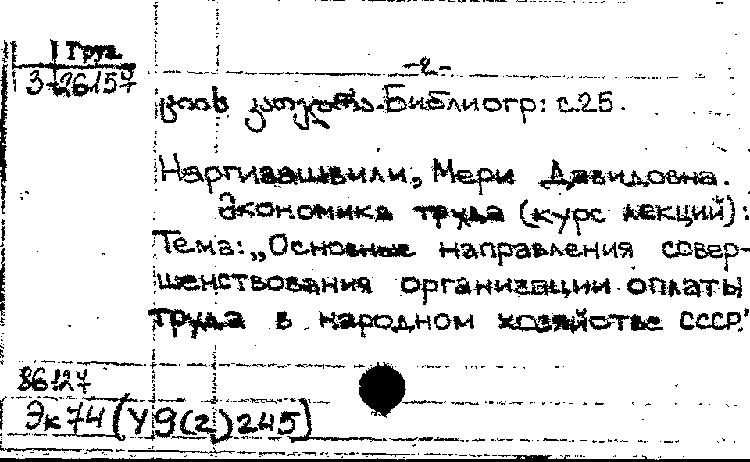 Груз.
3-26157
-2-
ციის კათედრა. Библиогр: с.25.
Наргизашвили, Мери Давидовна.
Экономика труда (курс лекций):
Тема: „Основные направления совер-
шенствования организации оплаты
труда в народном хозяйстве СССР."
86127
Эк74(У9(2)245)